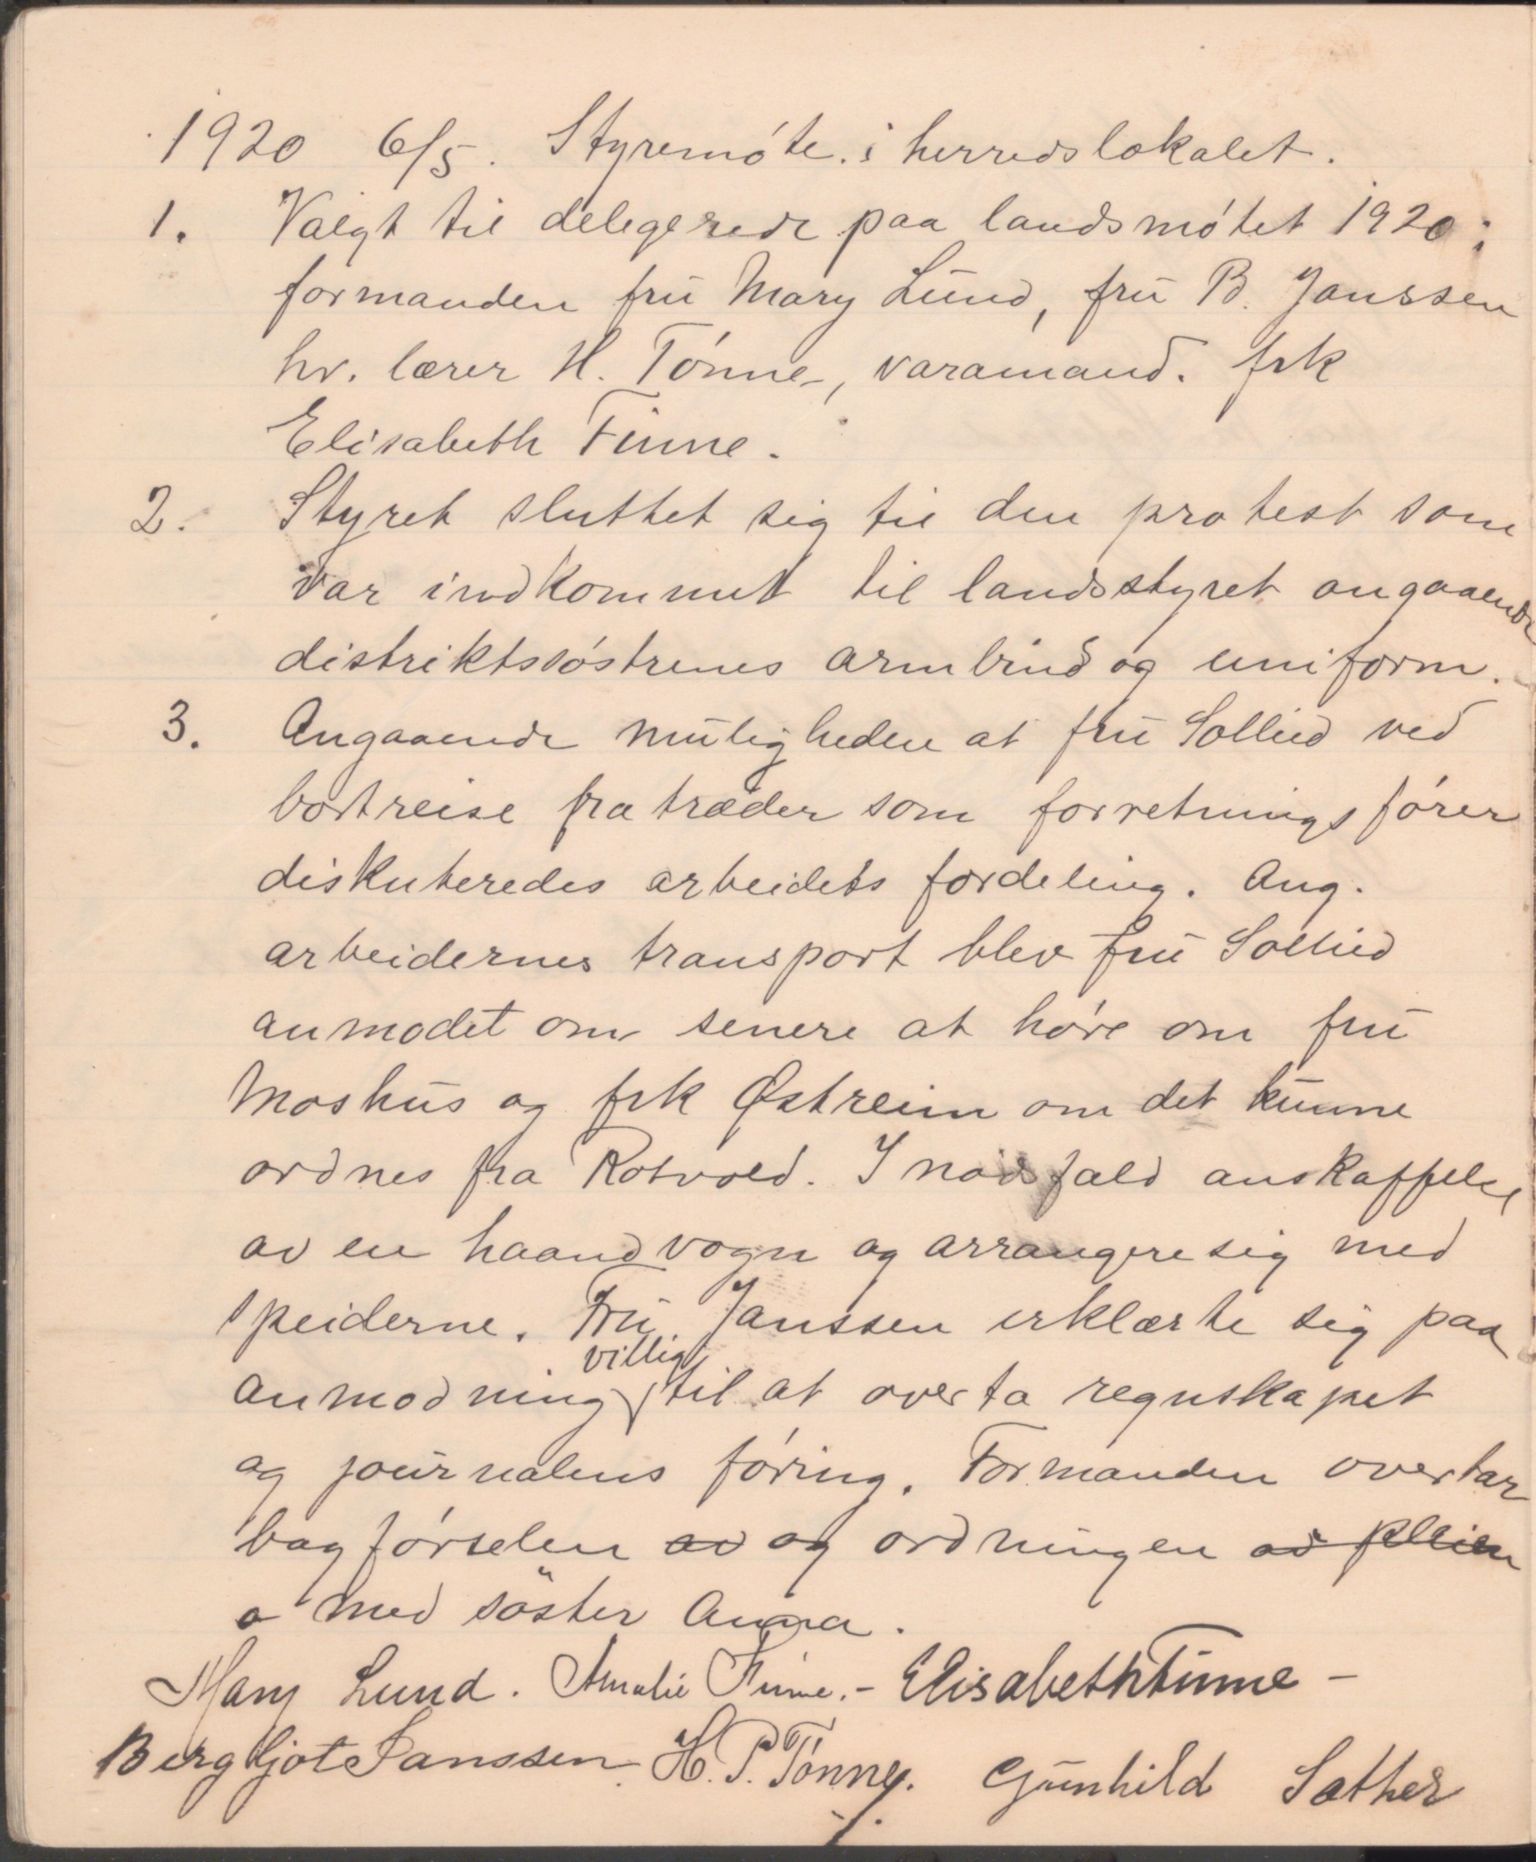 1920 6/5. Styremøte i herredslokalet.
1. Valgt til delegerede paa landsmøtet 1920:
formanden fru Mary Lund, fru B. Janssen
hr. lærer H. Tønne, varamand. frk
Elisabeth Finne.
2. Styret sluttet sig til den protest som
var indkommet til landsstyret angaaende
distriktssøstrenes armbind og uniform.
3. Angaaende muligheden at fru Sollied ved
bortreise fratræder som forretningsfører
diskuteredes arbeidets fordeling. Ang.
arbeidernes transport blev fru Sollied
anmodet om senere at høre om fru
Moshus og frk Østreim om det kunne
ordnes fra Rotvold. I nødsfald anskaffelse
av en haandvogn og arrangere sig med
speiderne. Fru Janssen erklærte sig paa
anmodning villig til at overta regnskapet
og journalens føring. Formanden overtar
bagførselen av og ordningen av pleien
a med søster Anna.
Mary Lund. Amalie Finne. - Elisabeth Finne -
Bergljot Janssen. H. P. Tønne. Gunhild Sæther